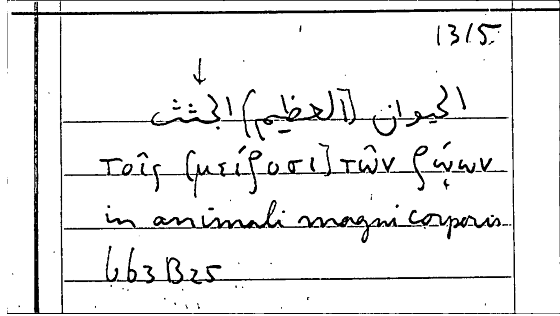 1315
الحيوان [العظيم] الجثث
τοῖς [μείζοσι] τῶν ζῴων
in animali magni corporis
663 B25